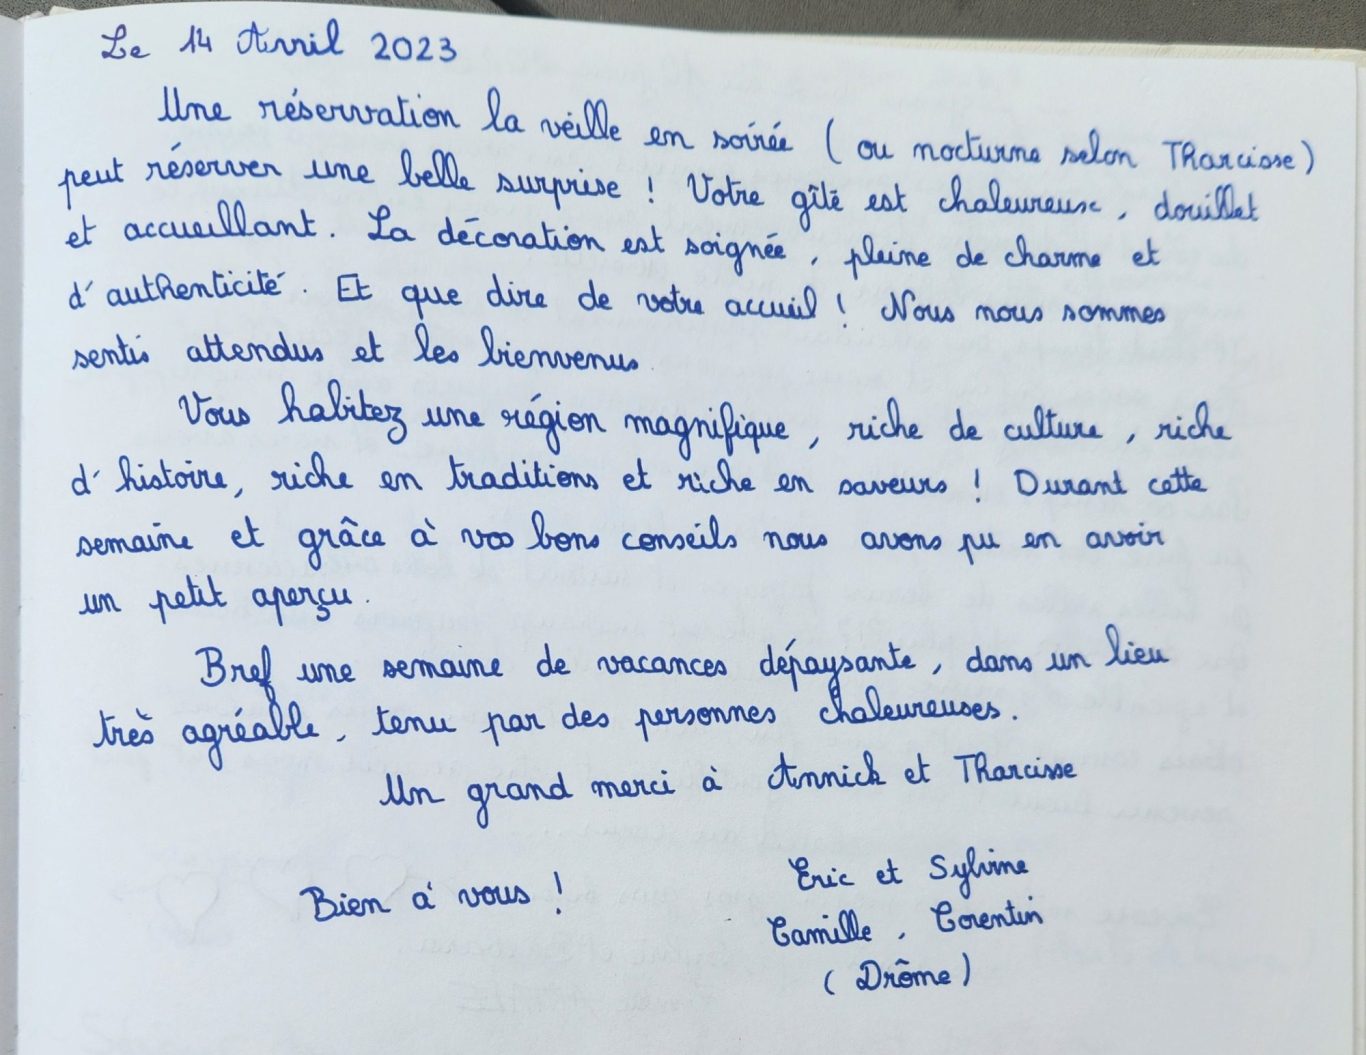 Le 14 Avril 2023
Une réservation la veille en soirée ( ou nocturne selon Tharcisse )
peut réserver une belle surprise ! Votre gîte est chaleureuse, douillet
et accueillant. La décoration est soignée, pleine de charme et
d'authenticité. Et que dire de votre accueil ! Nous nous sommes
sentis attendus et les bienvenus.
Vous habitez une région magnifique, riche de culture, riche
d'histoire, riche en traditions et riche en saveurs ! Durant cette
semaine et grâce à vos bons conseils nous avons pu en avoir
un petit aperçu.
Bref une semaine de vacances dépaysante, dans un lieu
très agréable, tenu par des personnes chaleureuses.
Un grand merci à Annick et Tharcisse
Bien à vous !
Eric et Sylvine
Camille, Corentin
( Drôme )